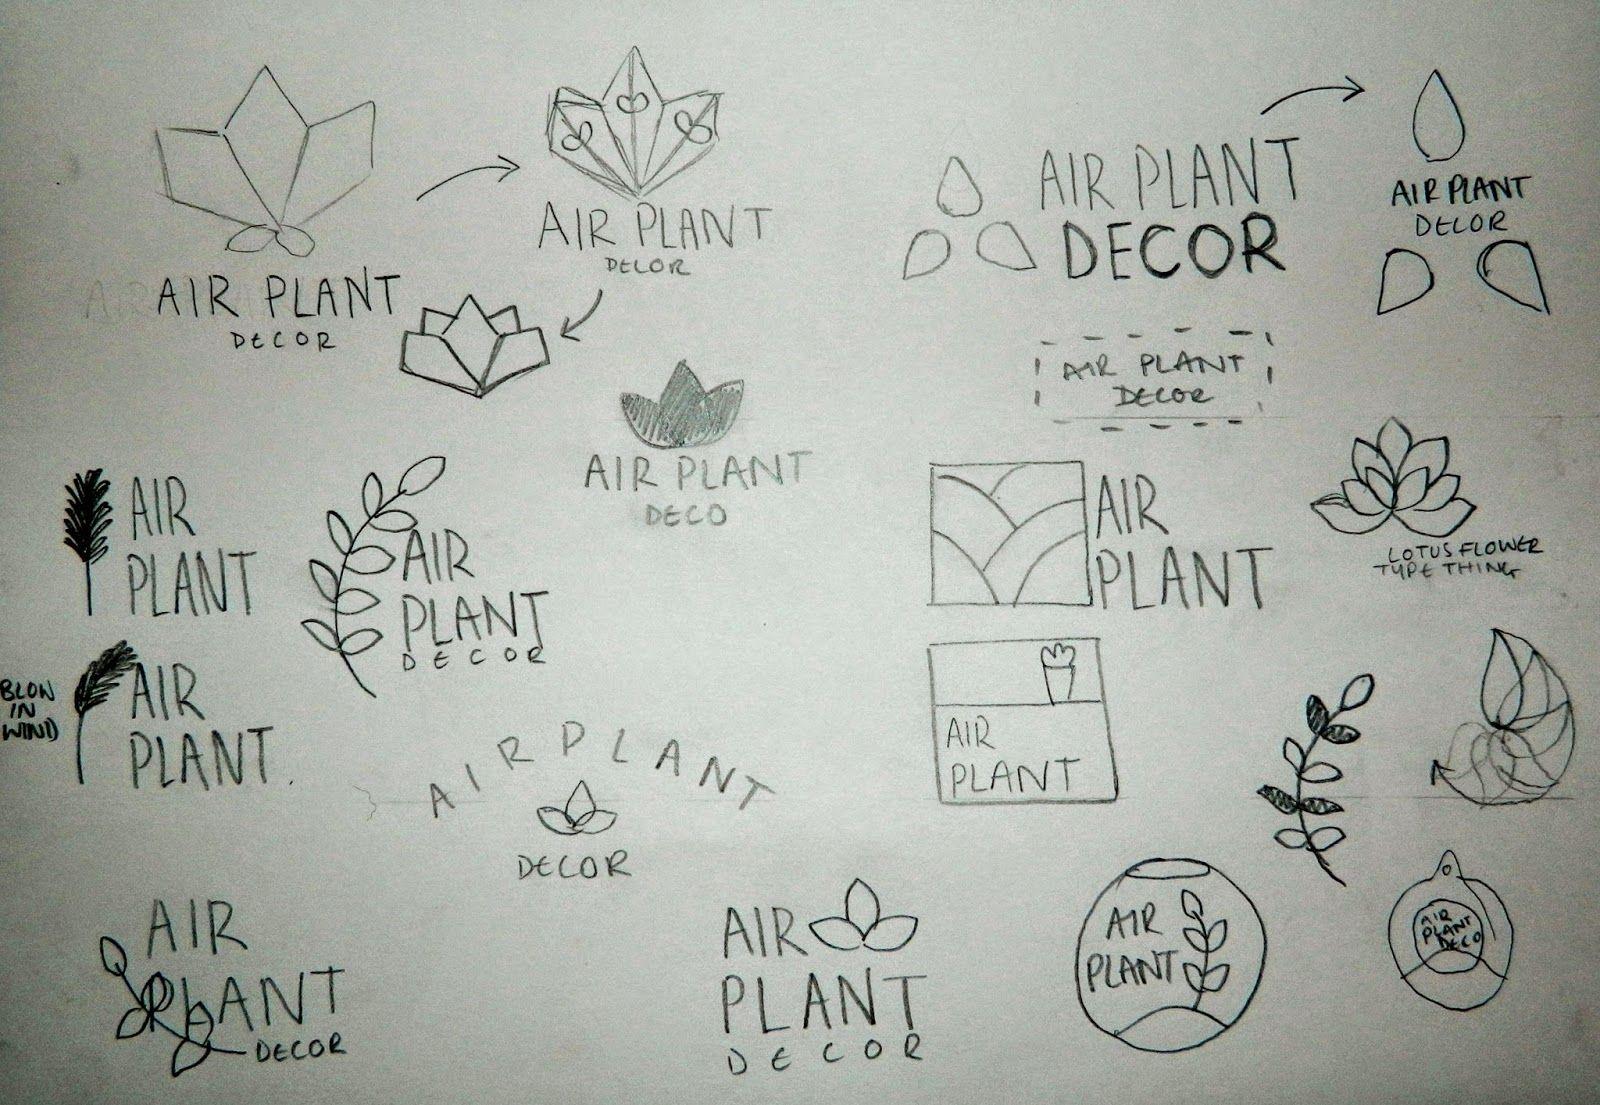 AIR PLANT
DECOR
AIR PLANT
DECOR
AIR PLANT
DECOR
AIR PLANT
DECOR
AIR PLANT
DECOR
AIR PLANT
DECO
AIR
PLANT
AIR
PLANT
DECOR
AIR
PLANT
LOTUS FLOWER
TYPE THING
BLOW
IN
WIND
AIR
PLANT.
AIR PLANT
DECOR
AIR
PLANT
AIR
PLANT
DECOR
AIR
PLANT
DECOR
AIR
PLANT
AIR
PLANT
DECO